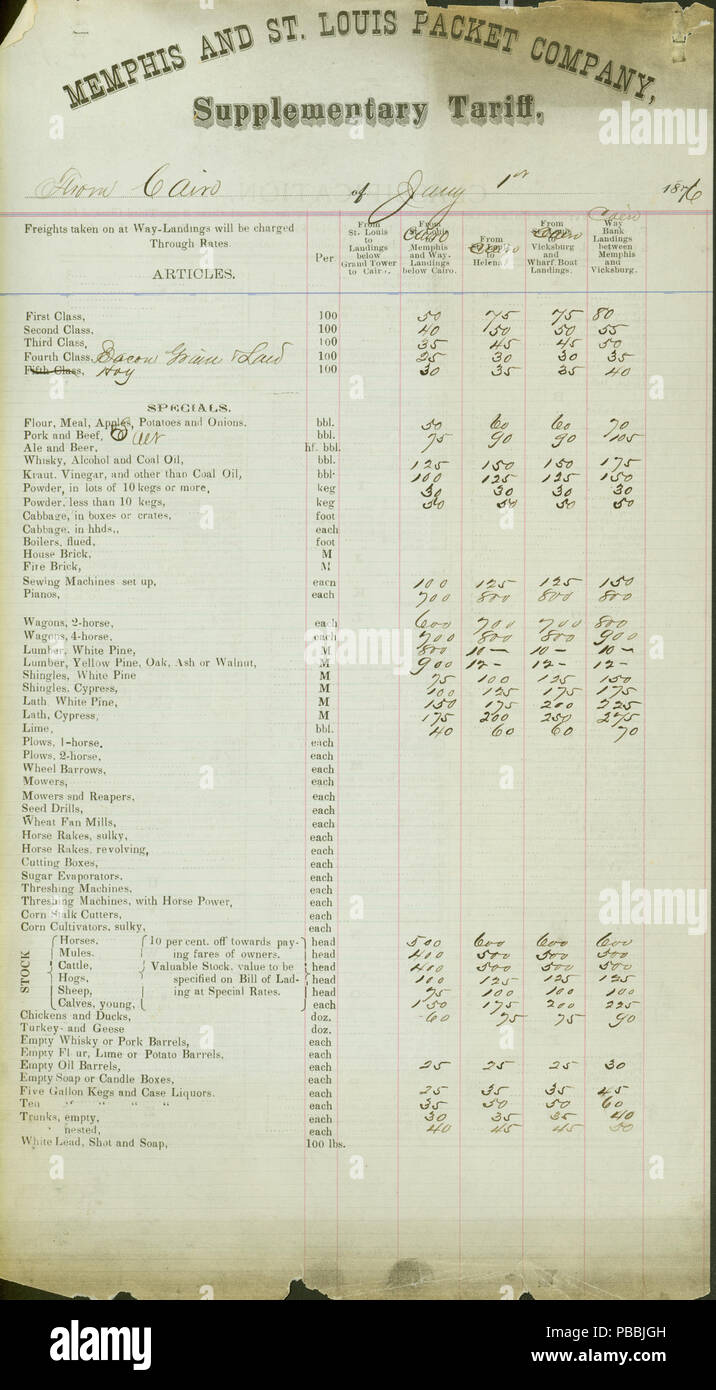 MEMPHIS AND ST. LOUIS PACKET COMPANY,
Supplementary Tariff.
From Cairo of Jany 1st 1876
Freights taken on at Way-Landings will be charged Through Rates.
ARTICLES.
Per
From St. Louis to Landings below Grand Tower to Cairo.
From Cairo Memphis and Way. Landings below Cairo.
From Cairo to Helena.
From Cairo Vicksburg and Wharf Boat Landings.
Cairo Way Bank Landings between Memphis and Vicksburg.
First Class, 100 50 75 75 80
Second Class, 100 40 50 50 55
Third Class, 100 35 45 45 50
Fourth Class, Bacon Grain & Lard 100 25 30 30 35
Fifth Class, Hay 100 30 35 35 40
SPECIALS.
Flour, Meal, Apples, Potatoes and Onions. bbl. 50 60 60 70
Pork and Beef, bbl. 75 90 90 105
Ale and Beer, hf. bbl.
Whisky, Alcohol and Coal Oil, bbl. 125 150 150 175
Kraut, Vinegar, and other than Coal Oil, bbl. 100 125 125 150
Powder, in lots of 10 kegs or more, keg 30 30 30 30
Powder, less than 10 kegs, keg 50 50 50 50
Cabbage, in boxes or crates, foot
Cabbage, in hhds., each
Boilers, flued, foot
House Brick, M
Fire Brick, M
Sewing Machines set up, each 100 125 125 150
Pianos, each 700 800 800 800
Wagons, 2-horse, each 600 700 700 800
Wagons, 4-horse. each 700 800 800 900
Lumber, White Pine, M 800 10- 10- 10-
Lumber, Yellow Pine, Oak, Ash or Walnut, M 900 12- 12- 12-
Shingles, White Pine M 75 100 125 150
Shingles, Cypress, M 100 125 175 175
Lath, White Pine, M 150 175 200 225
Lath, Cypress, M 175 200 250 275
Lime, bbl. 40 60 60 70
Plows, 1-horse, each
Plows, 2-horse, each
Wheel Barrows, each
Mowers, each
Mowers snd Reapers, each
Seed Drills, each
Wheat Fan Mills, each
Horse Rakes, sulky, each
Horse Rakes, revolving, each
Cutting Boxes, each
Sugar Evaporators. each
Threshing Machines, each
Threshing Machines, with Horse Power, each
Corn Stalk Cutters, each
Corn Cultivators, sulky, each
STOCK
Horses, 10 per cent. off towards pay- head 500 600 600 600
Mules. ing fares of owners. head 400 500 500 500
Cattle, Valuable Stock, value to be head 400 500 500 500
Hogs, specified on Bill of Lad- head 100 125 125 125
Sheep, ing at Special Rates. head 75 100 100 100
Calves, young, each 150 175 200 225
Chickens and Ducks, doz. 60 75 75 90
Turkey- and Geese doz.
Empty Whisky or Pork Barrels, each
Empty Flour, Lime or Potato Barrels. each
Empty Oil Barrels, each 25 25 25 30
Empty Soap or Candle Boxes, each
Five Gallon Kegs and Case Liquors. each 25 35 35 45
Ten " " " " each 35 50 50 60
Trunks, empty, each 30 35 35 40
" nested, each 40 45 45 50
White Lead, Shot and Soap, 100 lbs.
alamy
Image ID: PBBJGH
www.alamy.com